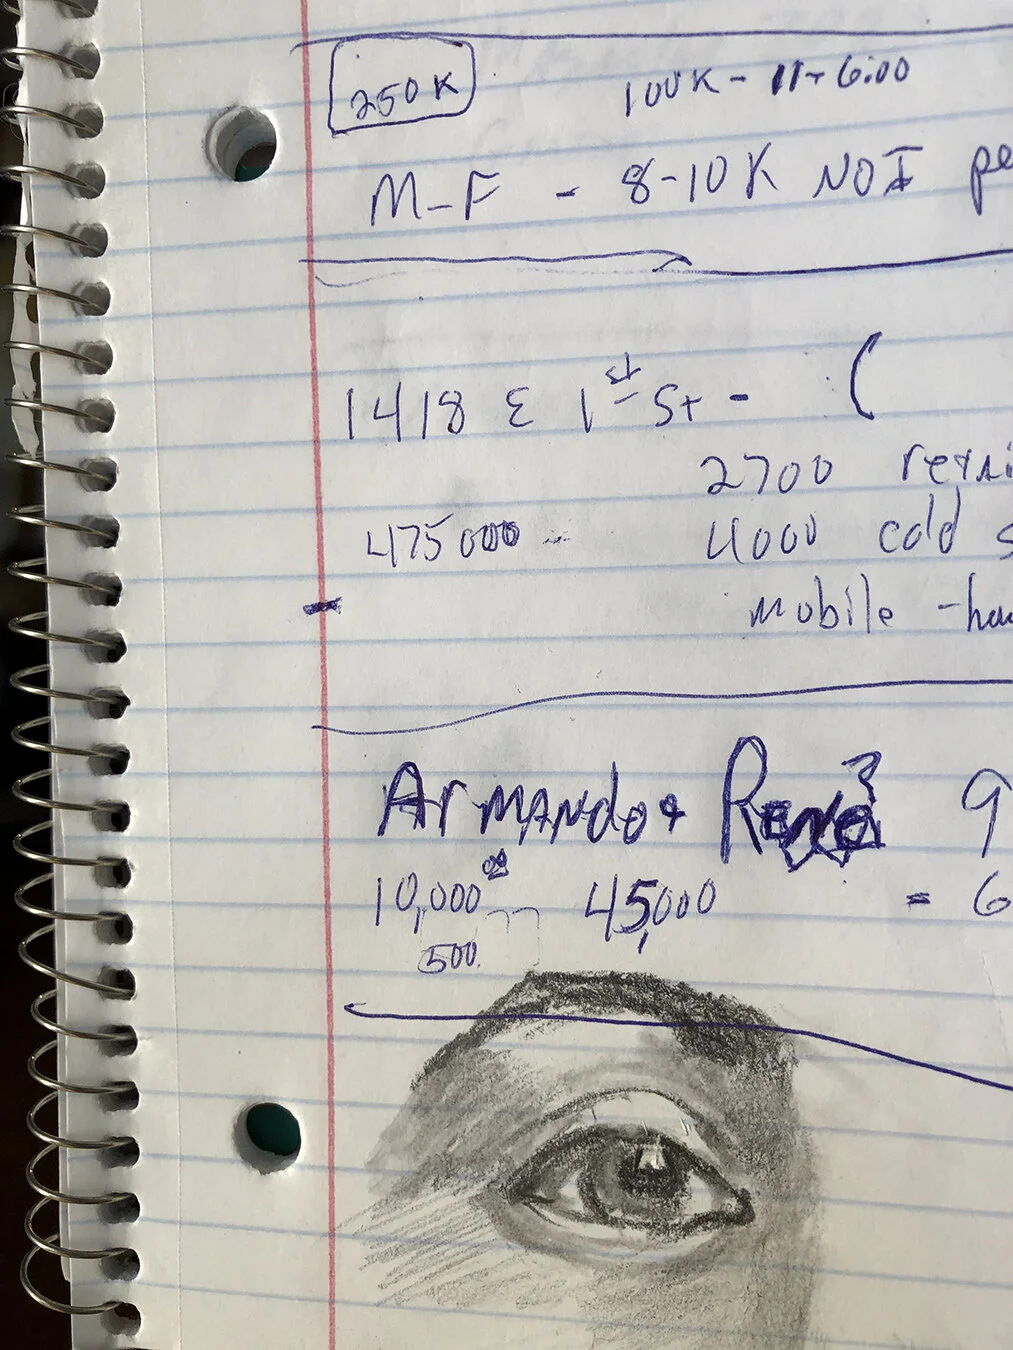 250K 100K - 11+ 6:00
M-F - 8-10K NOI
1418 E 1st St - (
2700
475000 - 4000 cold
mobile -
Armando + Rene 9
10,000 45,000 = 6
500